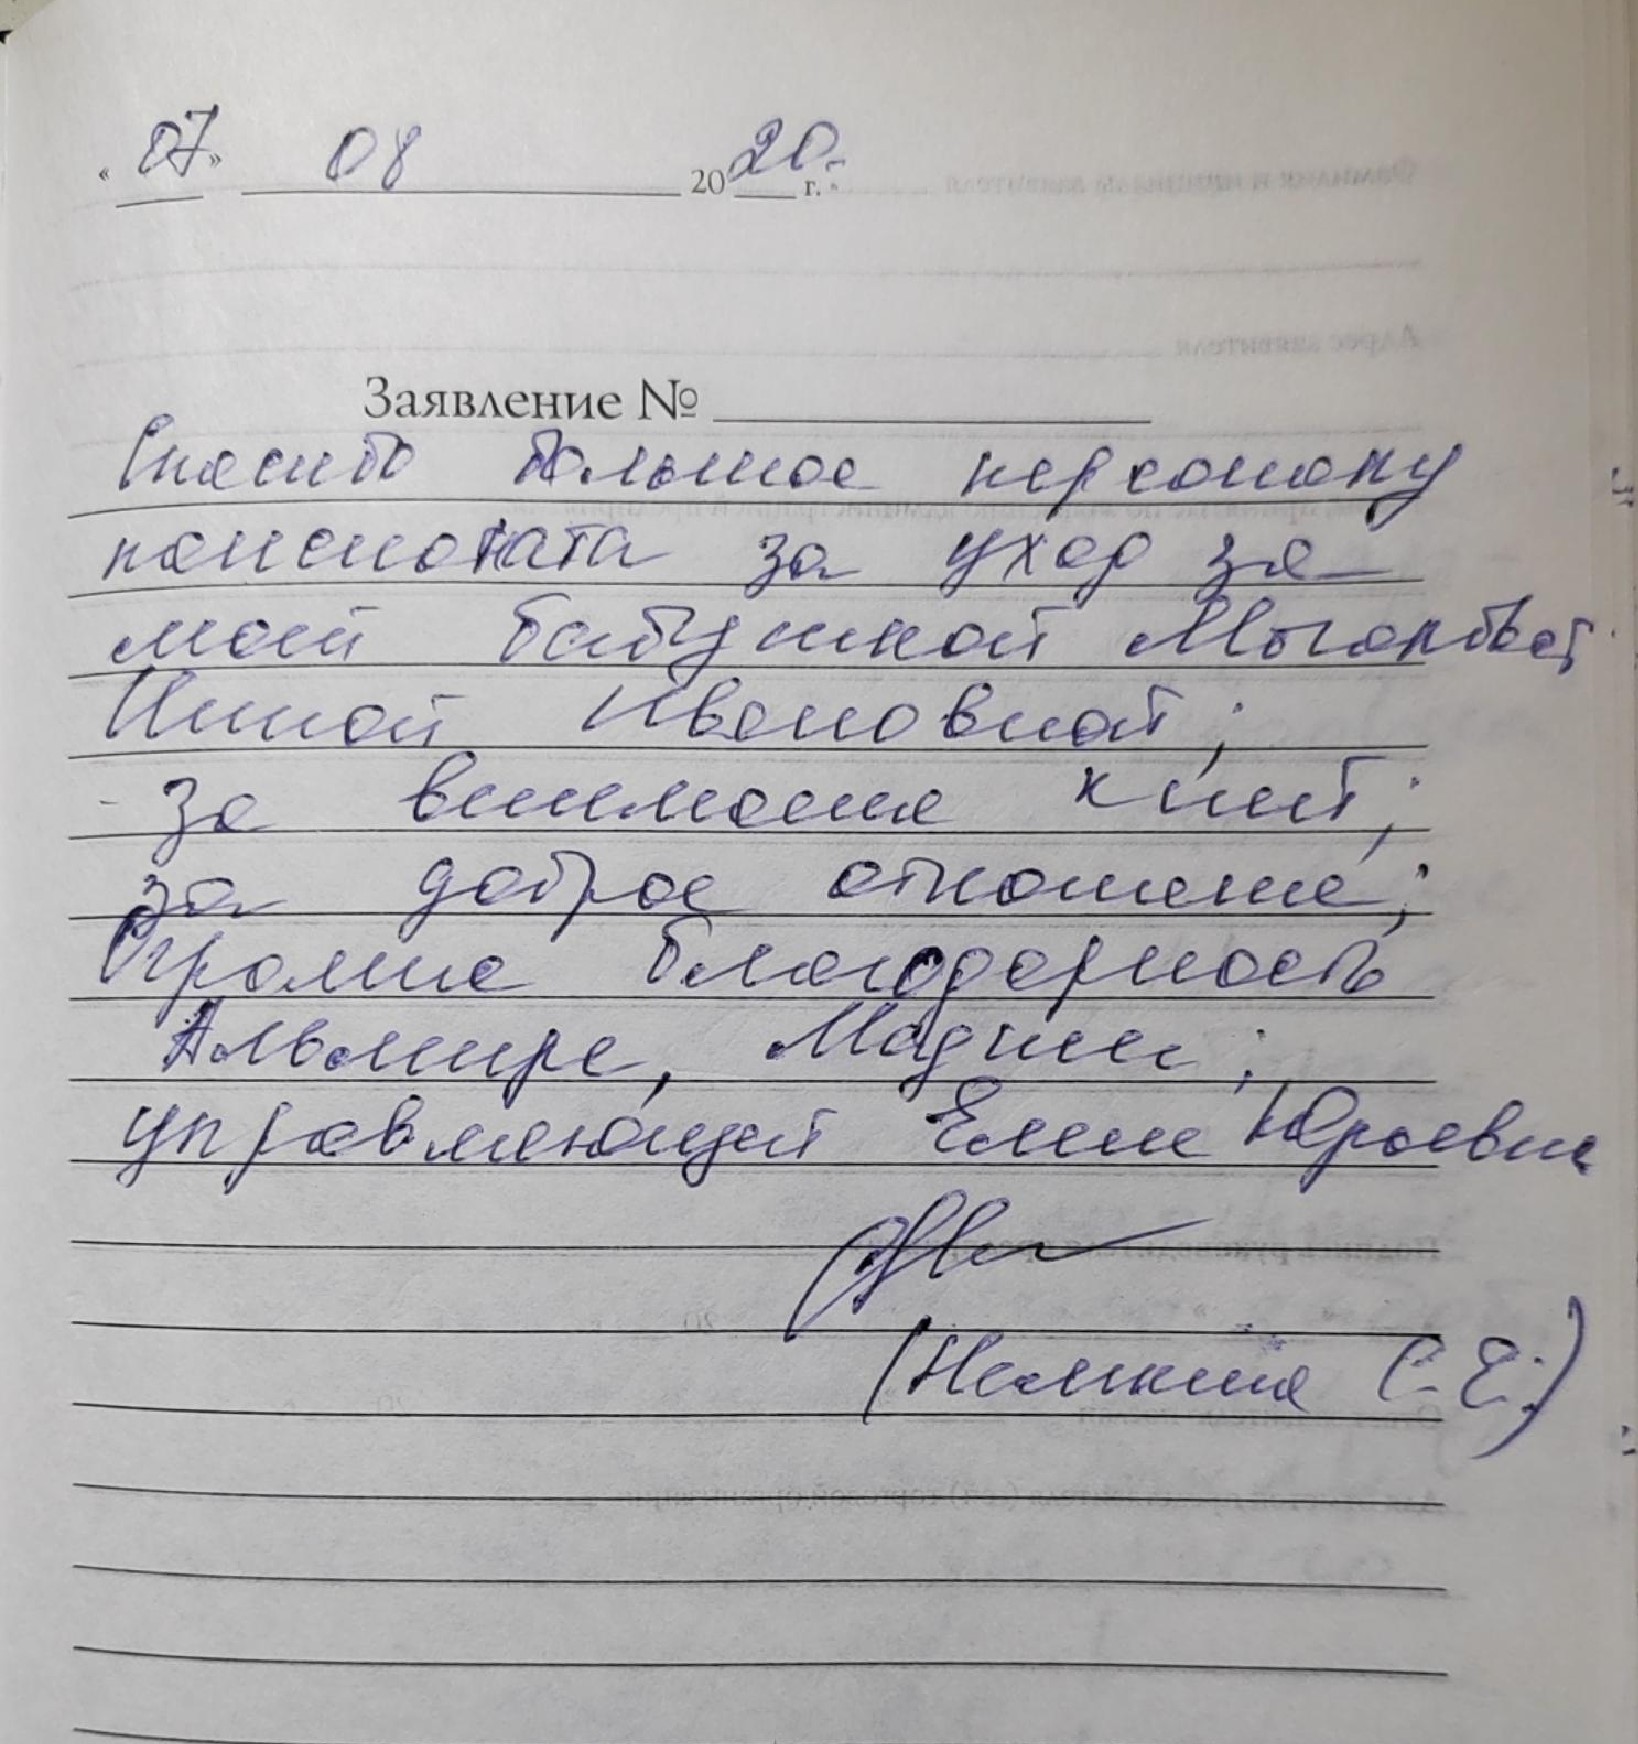 « 07 » 08 2020 г.
Заявление №
Спасибо большое персоналу
пансионата за уход за
моей бабушкой
Инной Ивановной;
- за внимание к ней;
за доброе отношение;
Огромне благодарность
Альмире, Мадине;
управляющей Елене Юрьевне
С.Е.)